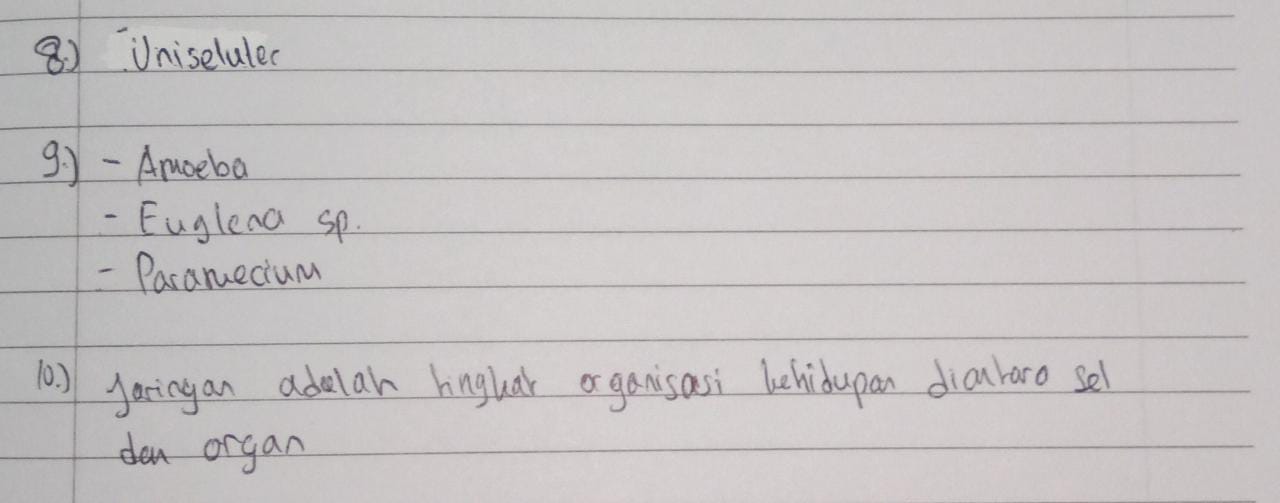 8.) Uniseluler
9.) - Amoeba
- Euglena sp.
- Paramecium
10.) Jaringan adalah tingkat organisasi kehidupan diantara sel
dan organ